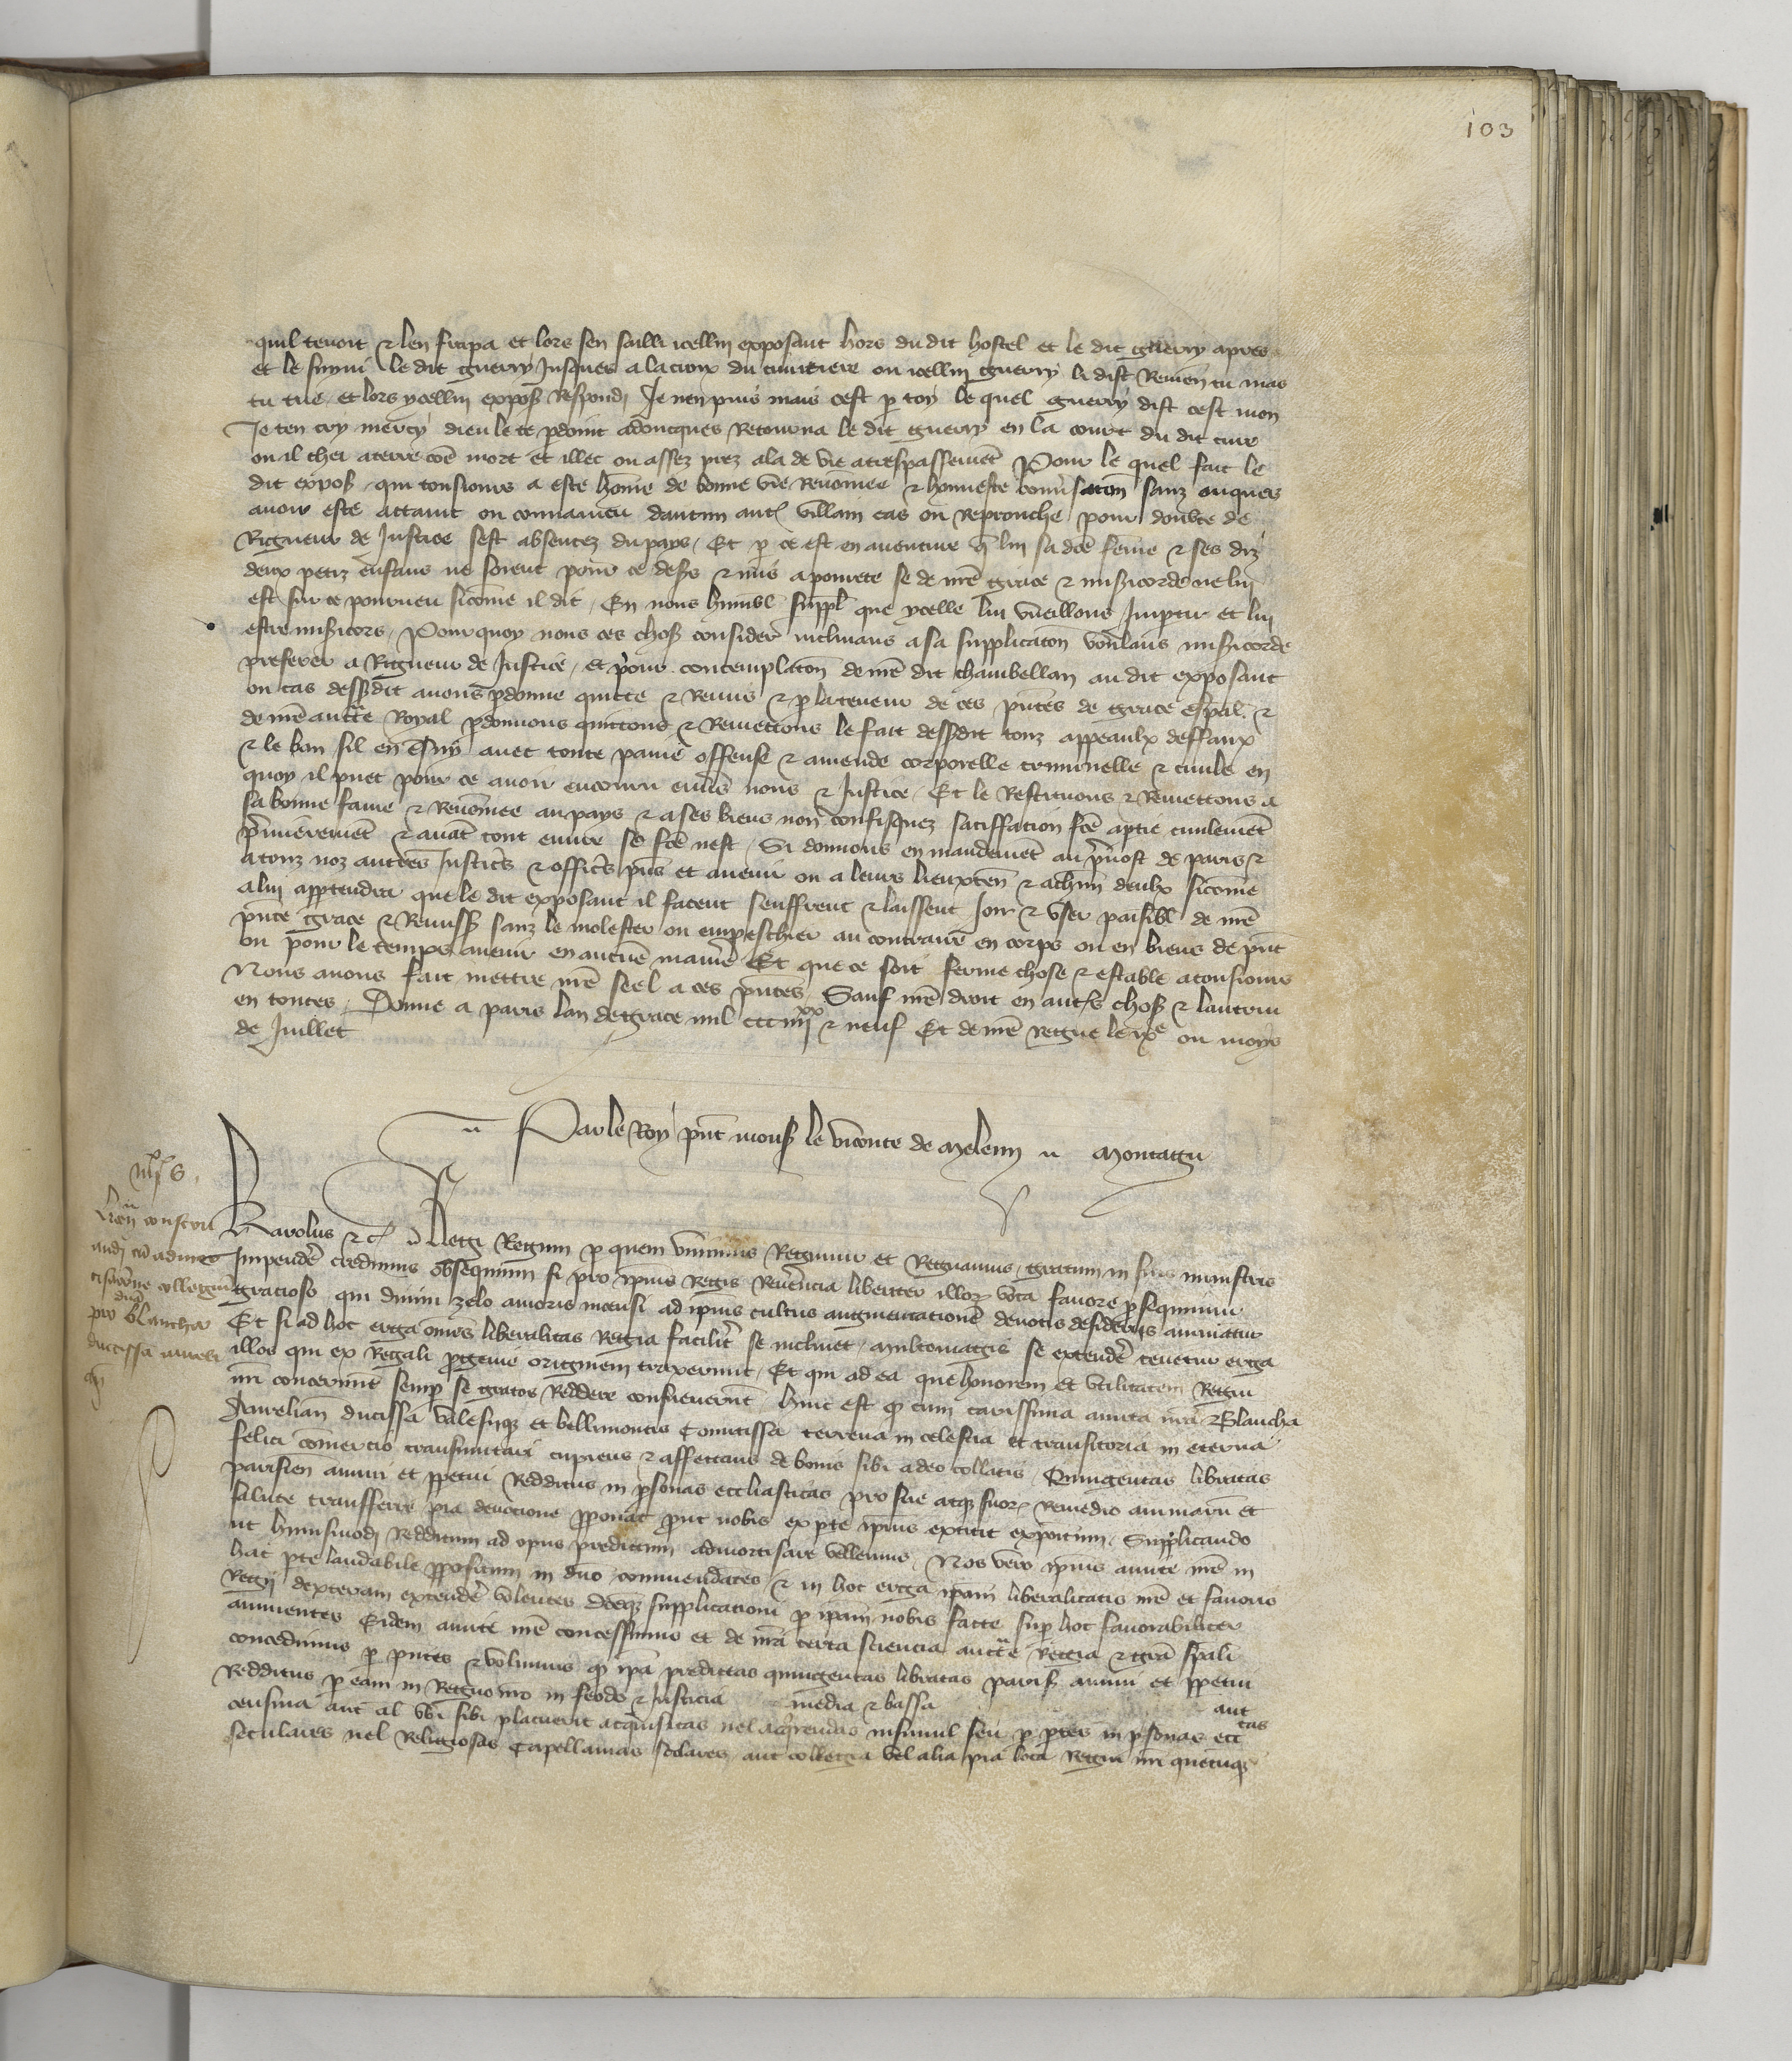 103
quil tenoit & len frapa et lors sen sailli icellui exposant hors du dit hostel et le dit guerry apres
et le suyui le dit guerry Jusques a la croix du cimitiere ou icellui guerry li dist Reuien tu mas
tu tue et lors ycellui expos Respondi Je nen puis mais cest p toy le quel guerry dist cest mon
Je ten cry mercy dieu le te pdoint adoncques Retourna le dit guerry en la court du dit cure
ou il chei a terre cōe mort et illec ou assez prez ala de vie a trespassemēt Pour le quel fait le
dit expos qui tousiours a este hōme de bonne vie Renōmee & honneste conusacion sanz onques
auoir este attaint ou conuaincu dautun autr villain cas ou Reprouche pour doubte de
Rigueur de Justice sest absentez du pays Et p ce est en auenture q lui sa dce feme & ses diz
deux petiz enfans ne soient pour ce desers & mis a pourete se de nre grace & misicorde ne lui
est sur ce pourueu sicōme il dit En nous humbl suppl que ycelle lui vueillons Imptir et lui
estre misicors Pour quoy nous ces chos consider inclinans a sa supplicatōn voulans misicorde
preferer a Rigueur de Justice et pour contemplatōn de nre dit chambellan au dit exposant
ou cas dessdit auons pdonne quitte & Remis & p la teneur de ces pntes de grace espal &
de nre auctte Royal pdonnons quittons & Remettons le fait dessdit touz appeaulx deffaux
& le ban sil en est suy auec toute paine offense & amende corporelle criminelle & ciuile en
quoy il puet pour ce auoir encouru enuers nous & Justice Et le Restituons & Remettons a
sa bonne fame & Renōmee au pays & a ses biens non confisquez satiffacion fce aptie ciuilemēt
pmierement & auāt tout euure se fce nest Si donnons en mandemēt au puost de paris &
a touz noz autres Justicrs & officrs pns et auenir ou a leurs lieuxten & a chun deulx sicōme
a lui apptendra que le dit exposant il facent seuffrent & laissent Joir & vser paisibl de nre
pnte grace & Remiss sanz le molester ou empeschier au contraire en corps ou en biens de pnt
ou pour le temps auenir en aucune maniere Et que ce soit ferme chose & estable a tousiours
Nous auons fait mettre nre seel a ces pntes Sauf nre droit en autrs chos & lautrui
en toutes Donne a paris lan de grace mil ccc iiii xx & neuf Et de nre regne le ixe ou moys
de Juillet
Par le Roy pnt mons le viconte de Meleun Montagu
Karolus &c Regi Regum p quem viuimus Regimur et Regnamus gratum in suis ministris
Impendere credimus obsequium si pro ipius Regis Reuerencia libenter illor vota fauore psequimur
gracioso qui diuini zelo amoris incensi ad ipius cultus augmentacionē deuotis desideriis animātur
Et si ad hoc erga omnes liberalitas Regia facilit se inclinet multomagis se extendere tenetur erga
illos qui ex Regali pgenie originem traxerunt Et qui ad ea que honorem et vtilitatem Regni
nri concernūt semp se gratos Reddere consueuerūt hinc est q cum carissima amita nra Blancha
Aurelian ducissa valesiiq et bellimontis Comitissa terrena in celestia et transitoria in eterna
felici cōmercio transmutari cupiens & affectans de bonis sibi a deo collatis Quingentas libratas
parisien annui et ppetui Redditus in psonas eccliasticas pro sue atq suor Remedio animarū et
salute transferre pia deuocione pponat put nobis ex pte ipius extitit expoitum Supplicando
ut huiusmodi Redditum ad opus predictum admortisare vellemus Nos vero ipius amite nre in
hac pte laudabile ppositum in dno commendātes & in hoc erga ipam liberalitatis nre et fauoris
Regii dexteram extendere volentes dceq supplicationi p ipam nobis facte sup hoc fauorabiliter
annuentes Eidem amite nre concessimus et de nra certa sciencia auctte Regia & gra spali
concedimus p pntes & volumus q ipa predictas quingentas libratas paris annui et ppetui
Redditus p eam in Regno nro in feodo & Justicia media & bassa aut
censiua aut al vbi sibi placuerit acqisitas uel acqrendas insimul seu p ptes in psonas ecc tas
seculares uel Religiosas Capellanias seclares aut collegia vel alia pia loca Regni nri quecūq
pro blancha
ducissa aurel